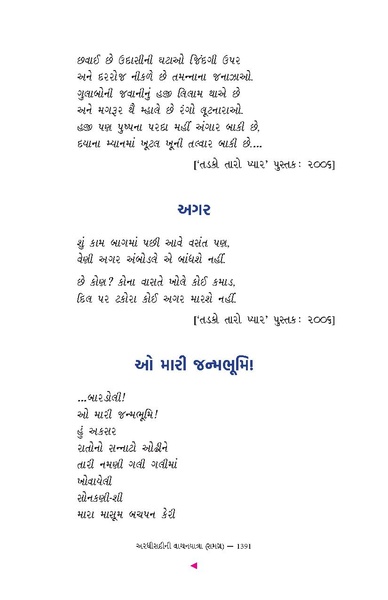 છવાઈ છે ઉદાસીની ઘટાઓ જિંદગી ઉપર
અને દરરોજ નીકળે છે તમન્નાના જનાઝાઓ.
ગુલાબોની જવાનીનું હજી લિલામ થાએ છે
અને મગરૂર થૈ મ્હાલે છે રંગો લૂટનારાઓ.
હજી પણ પુષ્પના પરદા મહીં અંગાર બાકી છે,
દયાના મ્યાનમાં ખૂટલ ખૂની તલ્વાર બાકી છે....
['તડકો તારો પ્યાર' પુસ્તક: ૨૦૦૬]
અગર
શું કામ બાગમાં પછી આવે વસંત પણ,
વેણી અગર અંબોડલે એ બાંધશે નહીં.
છે કોણ? કોના વાસતે ખોલે કોઈ કમાડ,
દિલ પર ટકોરા કોઈ અગર મારશે નહીં.
['તડકો તારો પ્યાર' પુસ્તક: ૨૦૦૬]
ઓ મારી જન્મભૂમિ!
...બારડોલી!
ઓ મારી જન્મભૂમિ!
હું અકસર
રાતોનો સન્નાટો ઓઢીને
તારી નમણી ગલી ગલીમાં
ખોવાયેલી
સોનકણી-શી
મારા માસૂમ બચપન કેરી
અરધીસદીની વાચનયાત્રા (સમગ્ર) — 1391